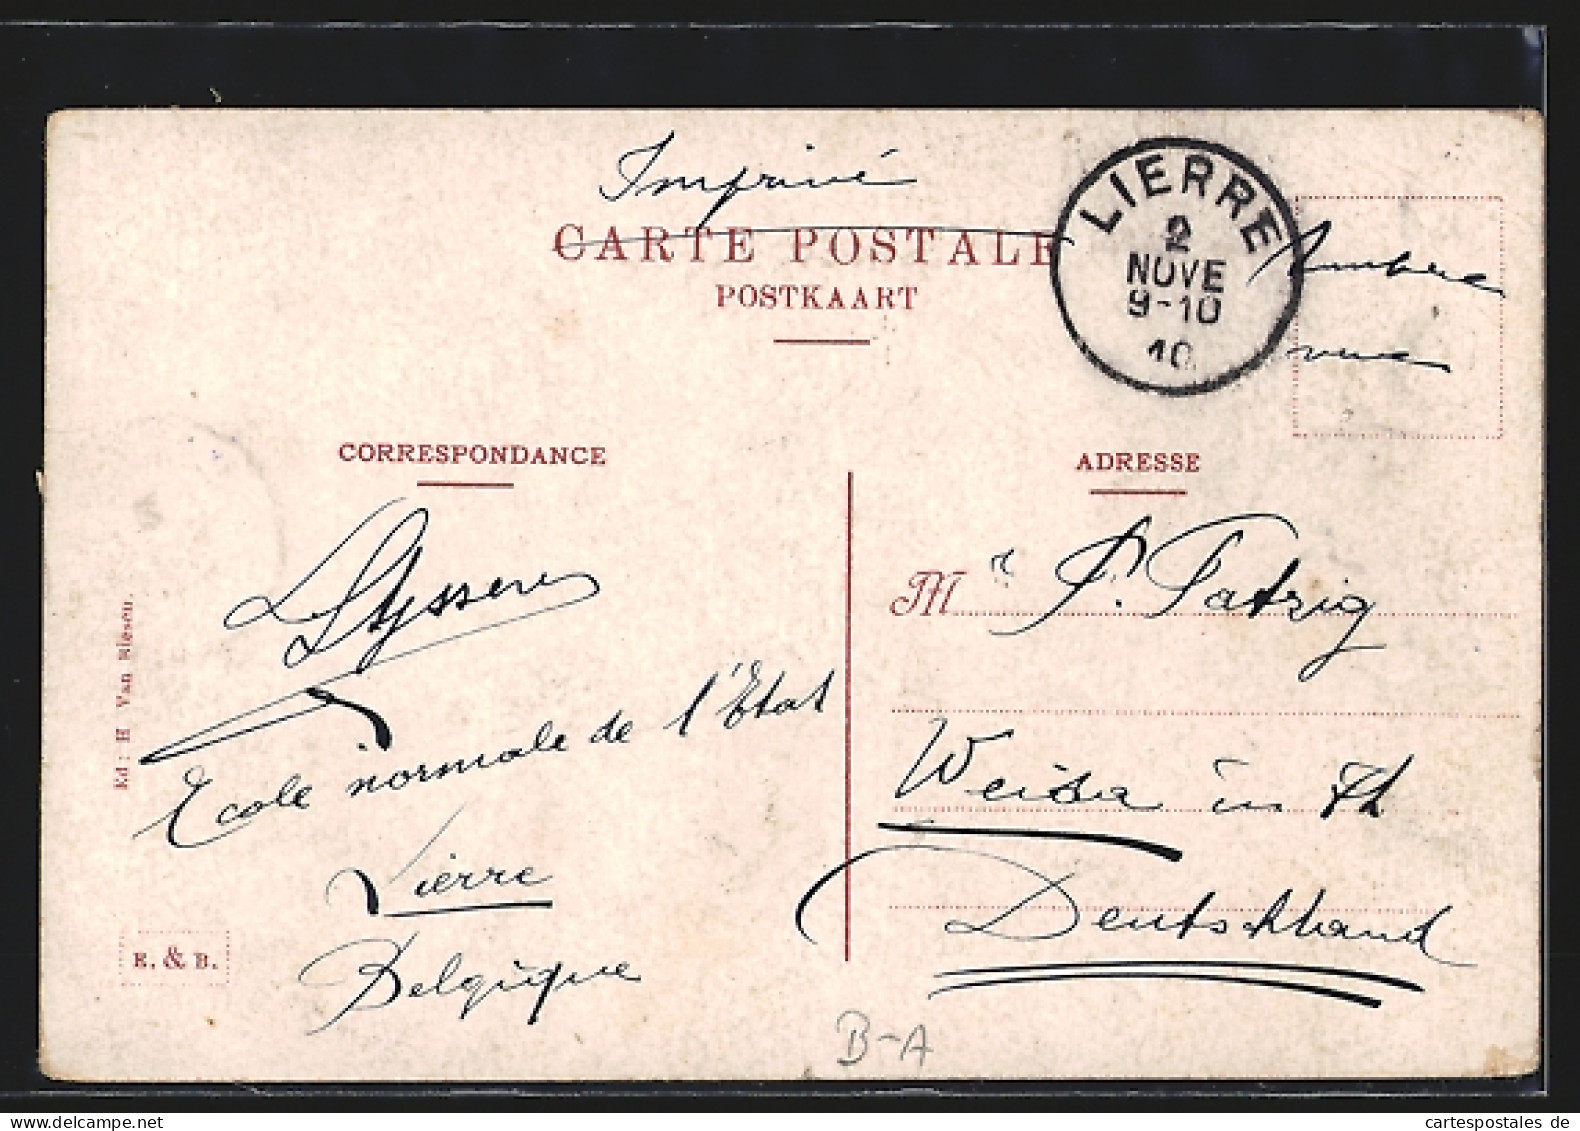 Imprimé
CARTE POSTALE
POSTKAART
LIERRE
2
NOVE
9-10
10
vue
CORRESPONDANCE
ADRESSE
Ecole normale de l'Etat
Lierre
Belgique
Ed: H Van Riesen.
E. & B.
M r P. Patzig
Weida in Th
Deutschland
B-A
www.cartespostales.de